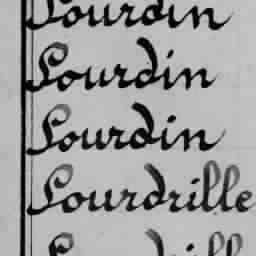 Lourdin
Lourdin
Lourdin
Lourdrille